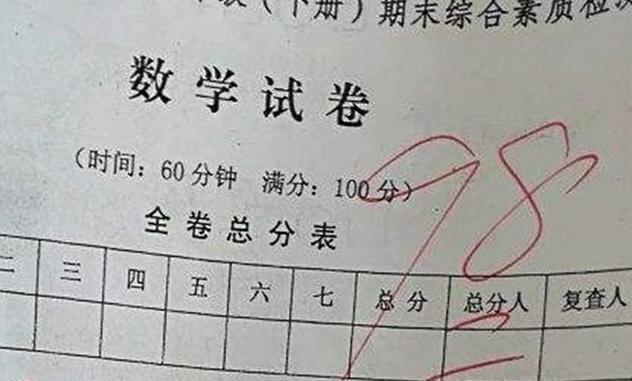 (下册)期末综合素质检测
数学试卷
(时间:60分钟 满分:100分)
98
全卷总分表
二 三 四 五 六 七 总分 总分人 复查人